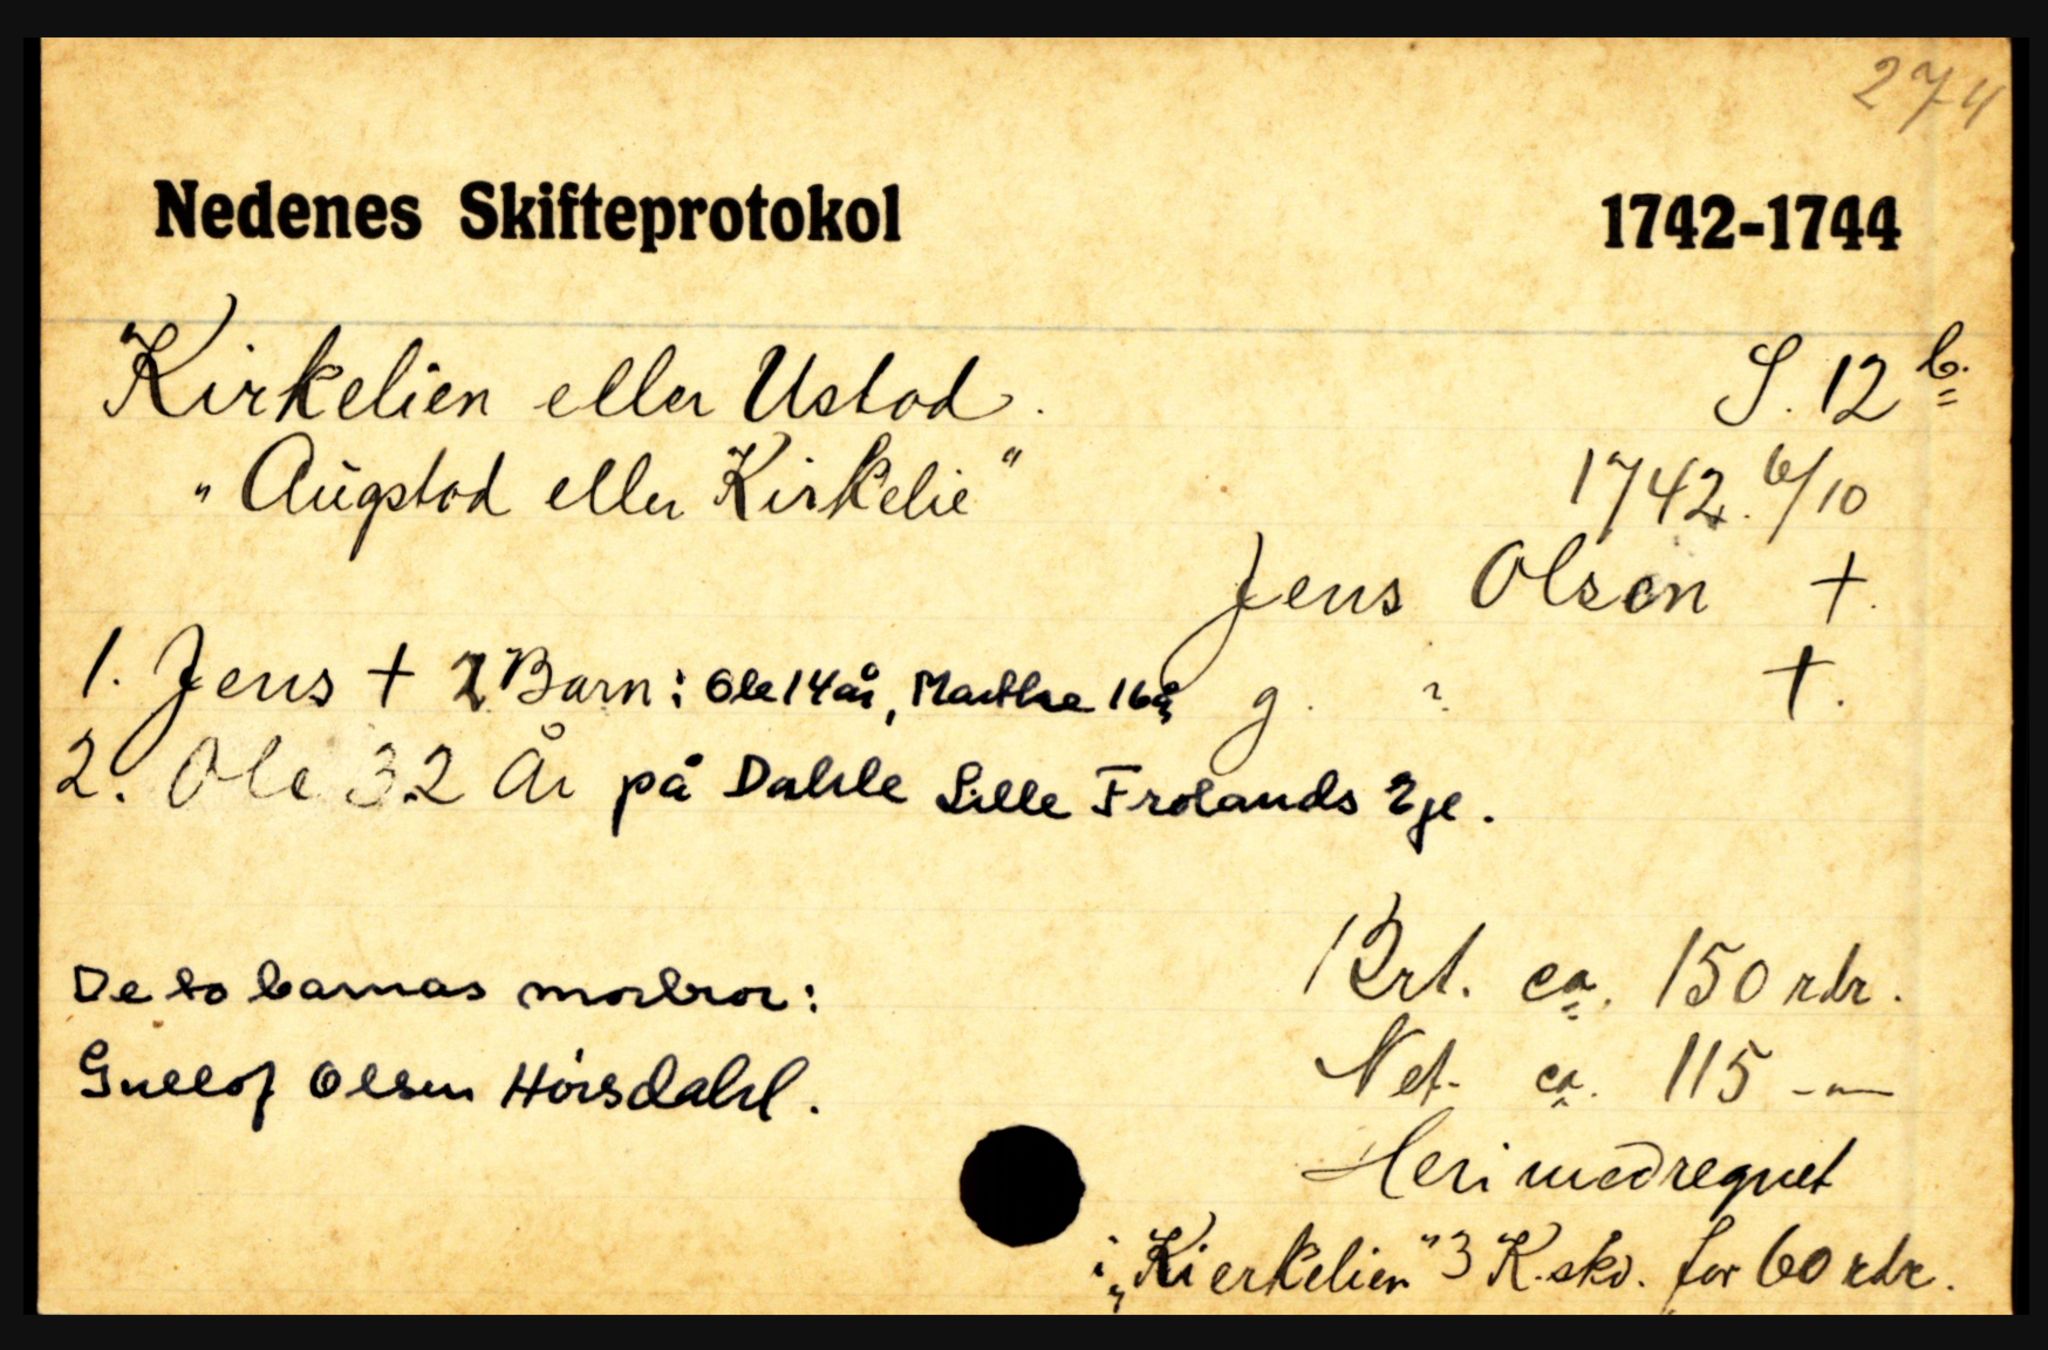 274
Nedenes Skifteprotokol 1742-1744
Kirkelien eller Ustad. S. 12 b.
"Augstad eller Kirkelie" 1742. 6/10
Jens Olsen †.
1. Jens † 2 Barn: Ole 14 år, Marthe 16 å, g. ? †.
2. Ole 32 År på Dahle Lille Frolands Eje.
Brt. ca. 150 rdr.
De to barnas morbror:
Net. ca. 115 -"-
Gullof Olsen Hörsdahl.
Heri medregnet
i "Kierkelien" 3 K.skv. for 60 rdr.